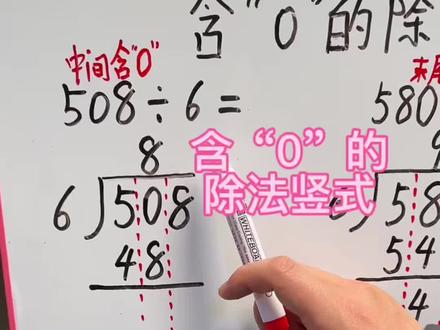 含“0”的除
中间含“0”
508÷6=
8
6 508
48
末
580
9
58
54
含“0”的
除法竖式
WHITEBOA